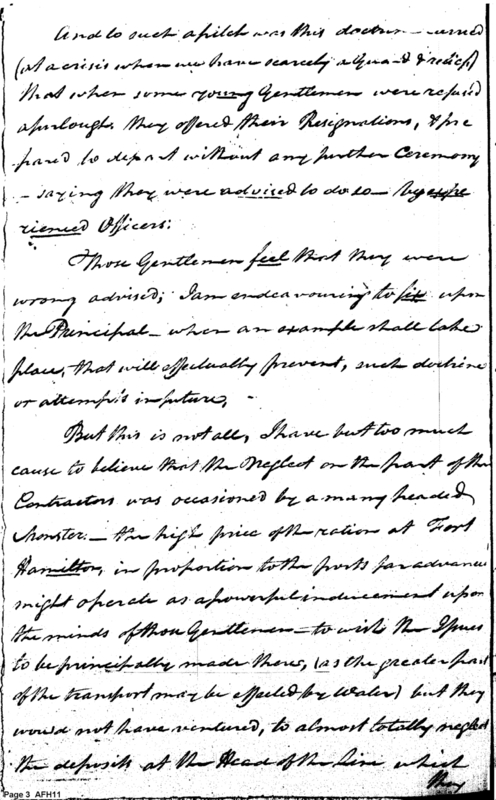 And to such a pitch was this doctrine – carried
(at a crisis when we have scarcely a Guard & relief)
that when some young Gentlemen were refused
a furlough, they offered their Resignations, & pre
pared to depart without any further Ceremony
– saying they were advised to do so – by expe
rienced Officers:
Those Gentlemen feel that they were
wrong advised; I am endeavouring to fix upon
the Principal – when an example shall take
place, that will effectually prevent, such doctrine
or attempts in future, –
But this is not all, I have but too much
cause to believe that the Neglect on the part of the
Contractors was occasioned by a many headed
Monster. – the high price of the ration at Fort
Hamilton, in proportion to the posts far advance
might operate as a powerful inducement upon
the minds of those Gentlemen – to wish the Issues
to be principally made there, (as the greater part
of the transport may be effected by Water) but they
would not have ventured, to almost totally neglect
the deposits at the Head of the Line which
they
Page 3 AFH11